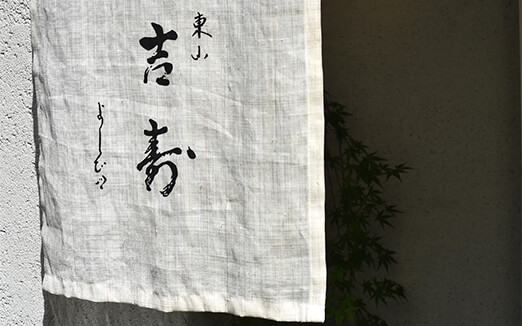 東山
吉寿
よしひさ